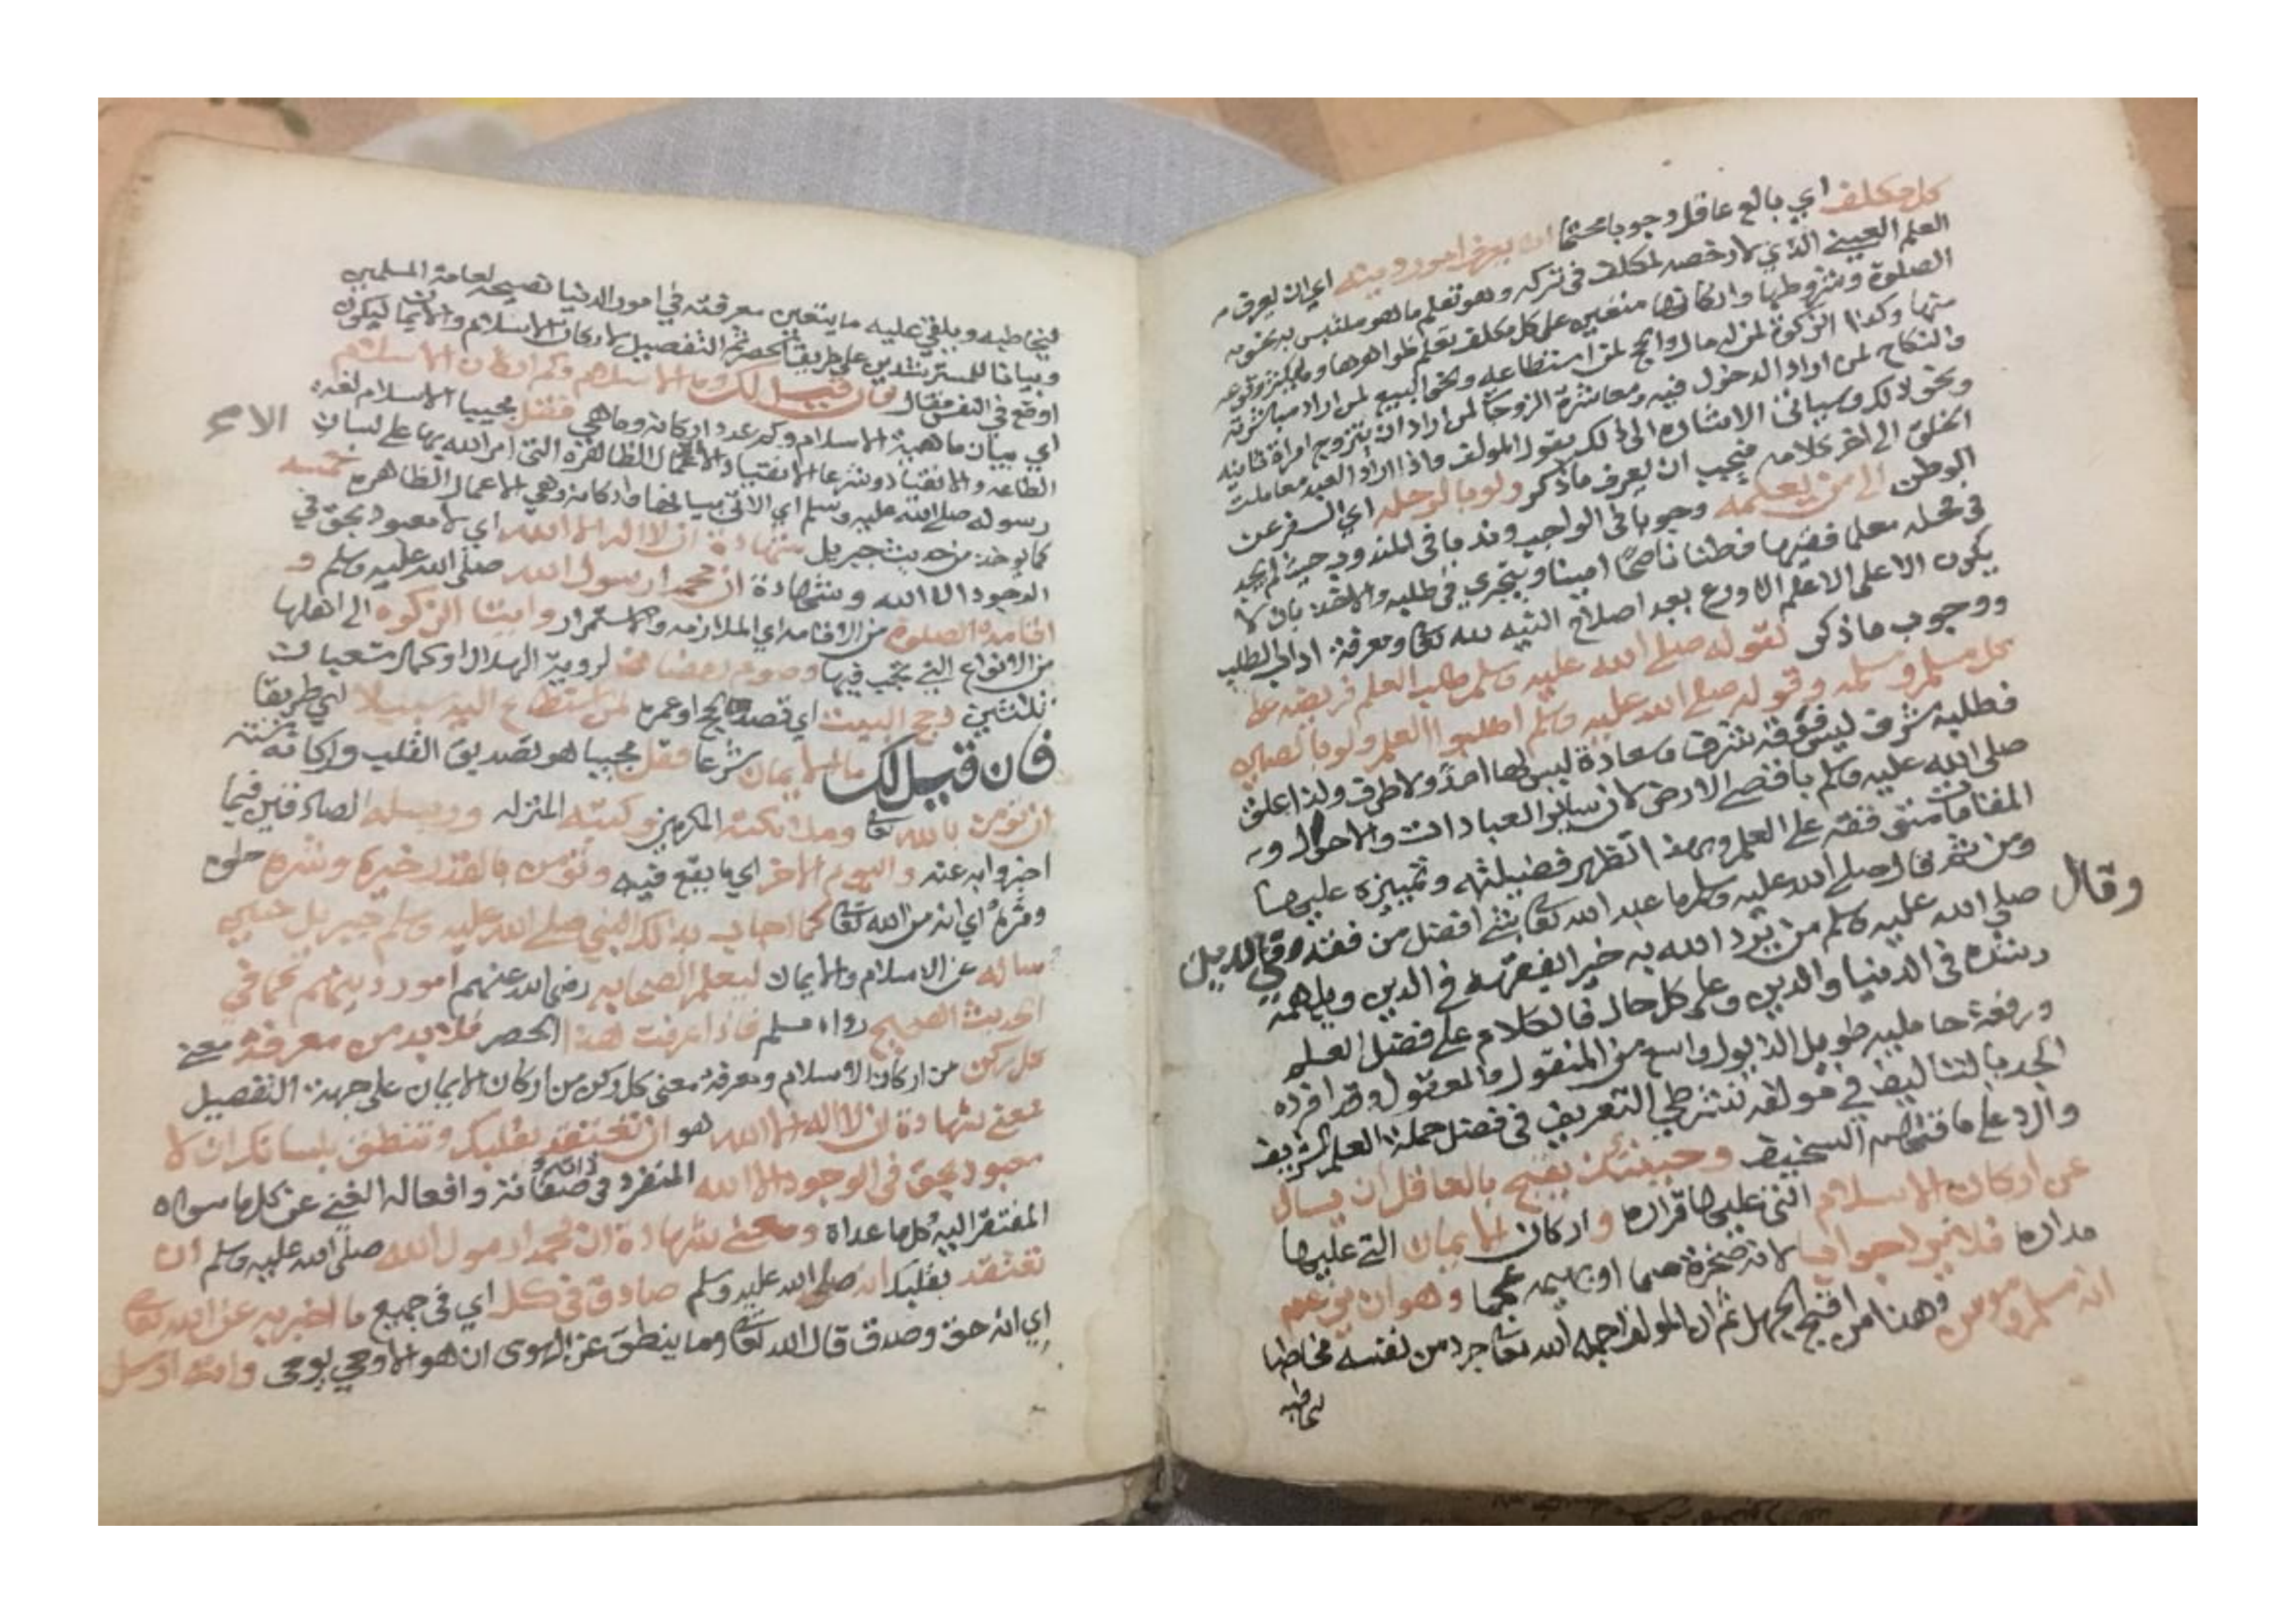 كل مكلف اي بالغ عاقل وجوبا محتما ان يعرف امور دينه اي ان يعرف م
العلم العيني الذي لا رخصه لمكلف في تركه وهو تعلم ما هو ملتبس به
الصلوة وشروطها واركانها متعين على كل مكلف تعلم ظواهرها
منها وكذا الزكوة لمن له مال والحج لمن استطاعه ونحو البيع لمن اراد مباشرته
والنكاح لمن اراد الدخول فيه ومعاشرة الزوجات لمن اراد ان يتزوج امراة ثانية
ونحو ذلك وسياتي الاشاره الى ذلك بقول المولف واذا اراد العبد معاملت
الخلق الى اخر كلامه فيجب ان يعرف ما ذكر ولو بالرحله اي السفر عن
الوطن الى من يعلمه وجوبا في الواجب وندبا في المندوب حيث لم يجد
في محله معلما فقيها فطنا ناصحا امينا ويتحرى في طلبه والاخذ بان لا
يكون الا على الاعلم الاورع بعد اصلاح النيه لله تعا ومعرفة اداب الطلب
ووجوب ما ذكر لقوله صلى الله عليه وسلم طلب العلم فريضه على
كل مسلم ومسلمه وقوله صلى الله عليه وسلم اطلبوا العلم ولو بالصين
فطلبه شرف ليس فوقه شرف وسعادة ليس لها امد ولا طرف ولذا علق
صلى الله عليه وسلم باقصى الارض لان ساير العبادات والاحوال و
المقامات متوقفة على العلم وبهذا تظهر فضيلته وتمييزه عليها
ومن ثم قال صلى الله عليه وسلم ما عبد الله تعا بشي افضل من فقه في الدين
وقال صلى الله عليه وسلم من يرد الله به خيرا يفقهه في الدين ويلهمه
رشده في الدنيا والدين وعلى كل حال فالكلام على فضل العلم
ورفعة حامليه طويل الذيول واسع من المنقول والمعقول وقد افرده
الجد بالتاليف في مولفه نشر طي التعريف في فضل حملة العلم الشريف
والرد على ماقتهم السخيف وحينئذ يقبح بالعاقل ان يسال
عن اركان الاسلام التي عليها قراره واركان الايمان التي عليها
مداره فلا يحير جوابا لانه صخرة صما او بهيمه عجما وهو ان يزعم
انه مسلم ومومن وهذا من اقبح الجهل ثم ان المولف رحمه الله تعا جرد من نفسه مخاطبا
ليخاطبه
ليخاطبه ويلقي عليه ما يتعين معرفته في امور الدنيا نصيحه لعامة المسلمين
وبيانا للمسترشدين على طريقة الحصر ثم التفصيل لاركان الاسلام والايمان ليكون
اوقع في النفس فقال فان قيل لك وما الاسلام وكم اركان الاسلام
اي بيان ماهية الاسلام وكم عدد اركانه وما هي فقل مجيبا الاسلام لغة
الطاعه والانقياد وشرعا الانقياد الاعمال الظاهره التي امر الله بها على لسان
رسوله صلى الله عليه وسلم اي الاتي بيانها واركانه وهي الاعمال الظاهره خمسه
كما يوخذ من حديث جبريل شهادة ان لا اله الا الله اي لا معبود بحق في
الوجود الا الله وشهادة ان محمدا رسول الله صلى الله عليه وسلم و
اقامة الصلوة من الاقامه اي الملازمه والاستمرار وايتا الزكوه الى اهلها
من الانواع التي تجب فيها وصوم رمضان لروية الهلال او كمال شعبان
ثلثين وحج البيت اي قصده بحج او عمره لمن استطاع اليه سبيلا اي طريقا
فان قيل لك ما الايمان شرعا فقل مجيبا هو تصديق القلب واركانه ستة
ان تومن بالله تعا وملائكته المكرمين وكتبه المنزله ورسله الصادقين فيما
اخبروا به عنه واليوم الاخر اي ما يقع فيه وتومن بالقدر خيره وشره حلوه
ومره اي انه من الله تعا كما اجاب بذلك النبي صلى الله عليه وسلم جبريل حين
ساله عن الاسلام والايمان ليعلم الصحابه رضي الله عنهم امور دينهم كما في
الحديث الصحيح رواه مسلم فاذا عرفت هذا الحصر فلا بد من معرفة معنى
كل ركن من اركان الاسلام ومعرفة معنى كل ركن من اركان الايمان على جهة التفصيل
فمعنى شهادة ان لا اله الا الله هو ان تعتقد بقلبك وتنطق بلسانك ان لا
معبود بحق في الوجود الا الله المنفرد في ذاته وصفاته وافعاله الغني عن كل ما سواه
المفتقر اليه كل ما عداه ومعنى شهادة ان محمدا رسول الله صلى الله عليه وسلم ان
تعتقد بقلبك انه صلى الله عليه وسلم صادق في كل اي في جميع ما اخبر به عن الله تعا
اي انه حق وصدق قال الله تعا وما ينطق عن الهوى ان هو الا وحي يوحى وانه ارسل